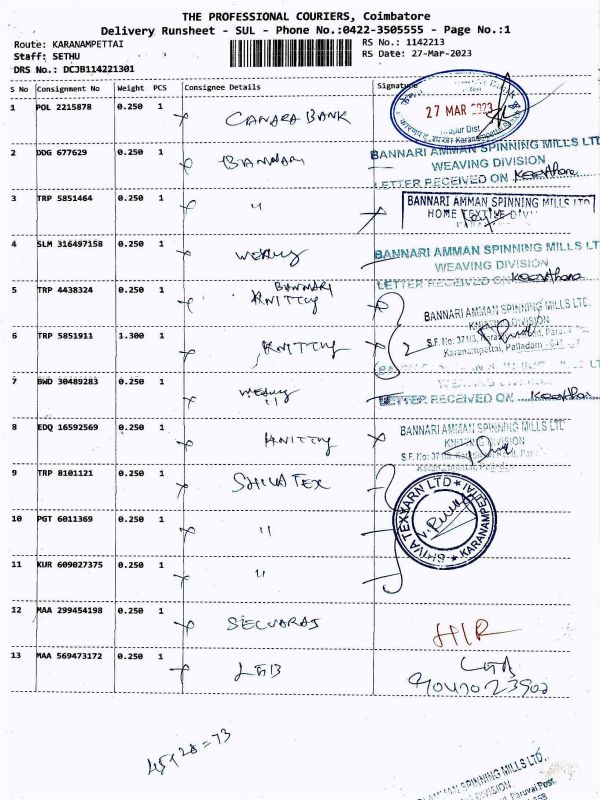 THE PROFESSIONAL COURIERS, Coimbatore
Delivery Runsheet - SUL - Phone No.:0422-3505555 - Page No.:1
Route: KARANAMPETTAI
RS No.: 1142213
Staff: SETHU
RS Date: 27-Mar-2023
DRS No.: DCJB114221301
S No Consignment No Weight PCS Consignee Details Signature
1 POL 2215878 0.250 1 CANARA BANK
27 MAR 2023
2 DDG 677629 0.250 1 BANNARI
BANNARI AMMAN SPINNING MILLS LTD
WEAVING DIVISION
LETTER RECEIVED ON Keerthana
3 TRP 5851464 0.250 1 "
BANNARI AMMAN SPINNING MILLS LTD
HOME TEXTILE DIVI
4 SLM 316497158 0.250 1 Weaving
BANNARI AMMAN SPINNING MILLS LTD
WEAVING DIVISION
LETTER RECEIVED ON Keerthana
5 TRP 4438324 0.250 1 BANNARI
KNITTING
BANNARI AMMAN SPINNING MILLS LTD.
KNITTING DIVISION
S.F. No: 371/3,
Karanampettai, Palladam
6 TRP 5851911 1.300 1 KNITTING
7 BWD 30489283 0.250 1 Weaving
WEAVING DIVISION
LETTER RECEIVED ON Keerthana
8 EDQ 16592569 0.250 1 KNITTING
BANNARI AMMAN SPINNING MILLS LTD
KNITTING DIVISION
9 TRP 8101121 0.250 1 SHIVA TEX
SHIVA TEXYARN LTD
KARANAMPETTAI
10 PGT 6011369 0.250 1 "
11 KUR 609027375 0.250 1 "
12 MAA 299454198 0.250 1 SELVARAJ
13 MAA 569473172 0.250 1 LGB
LGB
45+28=73
SPINNING MILLS LTD.
DIVISION
Paruvai Post.